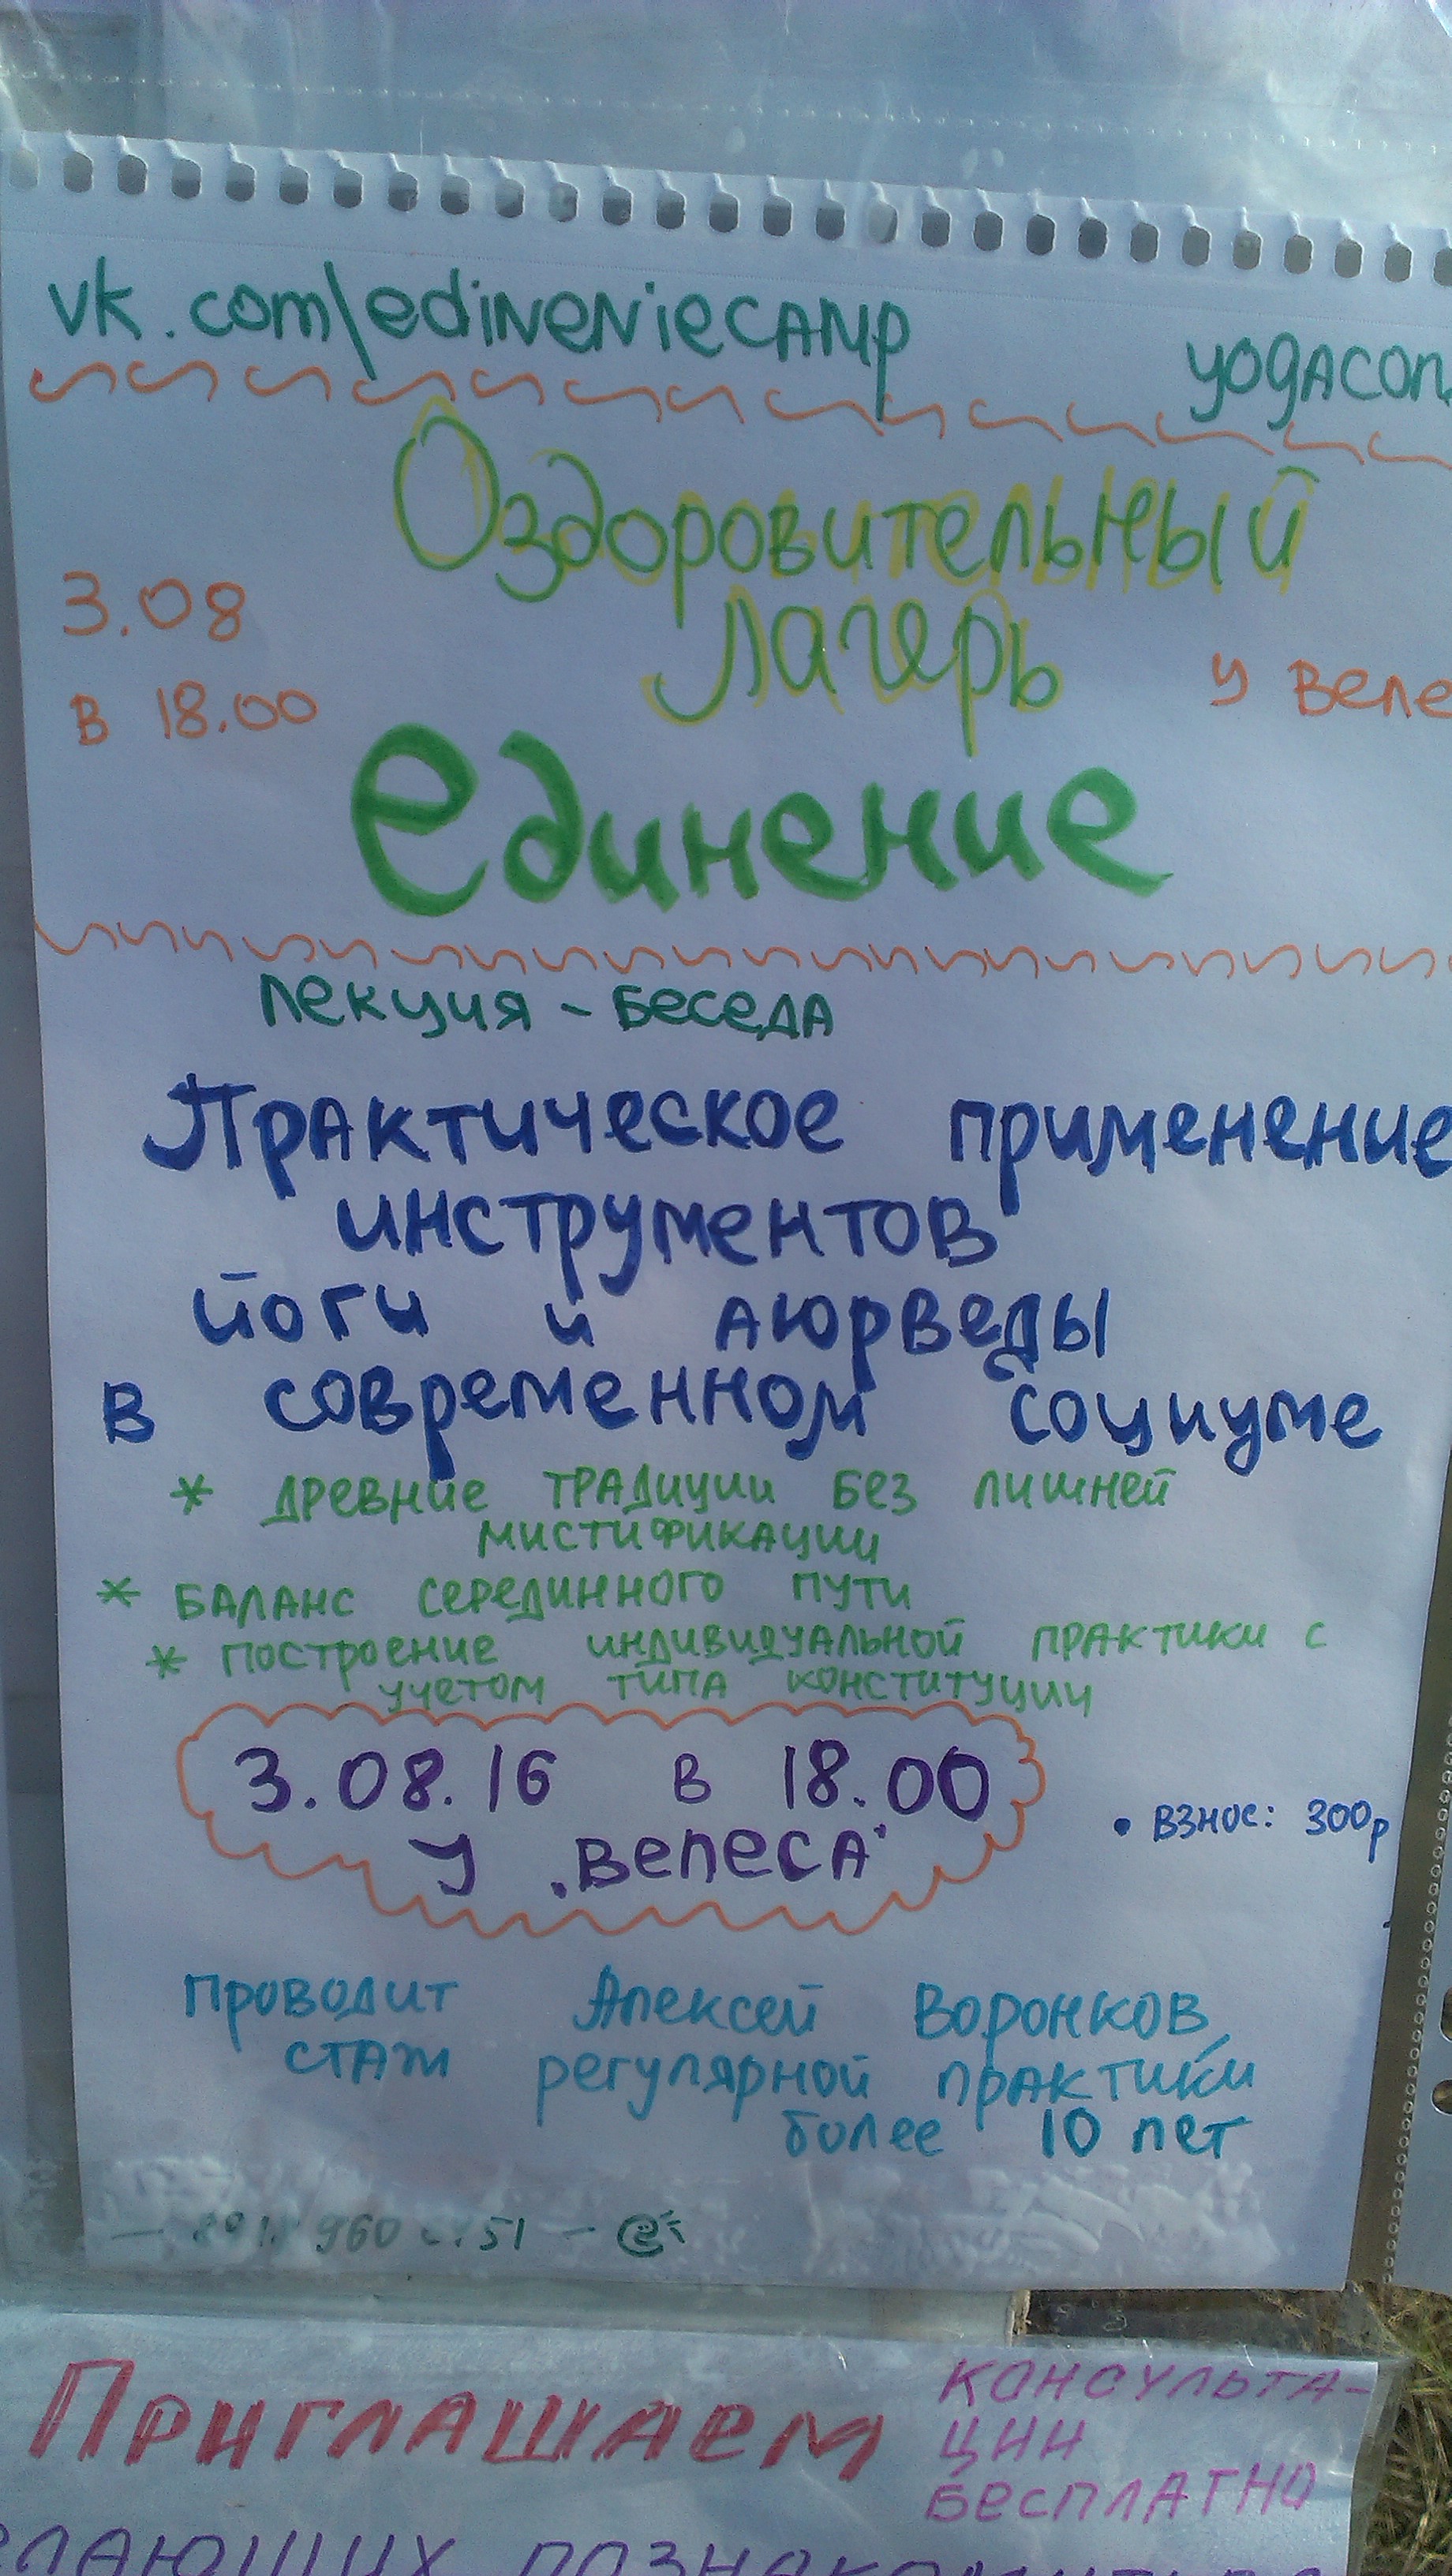 vk.com\edineniecamp
yogacom
Оздоровительный
лагерь
3.08
в 18.00
у Веле
Единение
лекция - беседа
Практическое применение
инструментов
йоги и аюрведы
в современном социуме
* древние традиции без лишней
мистификации
* баланс серединного пути
* построение индивидуальной практики с
учетом типа конституции
3.08.16 в 18.00
у "Велеса"
• взнос: 300р
проводит Алексей Воронков,
стаж регулярной практики
более 10 лет
960
Приглашаем
консульта-
ции
бесплатно